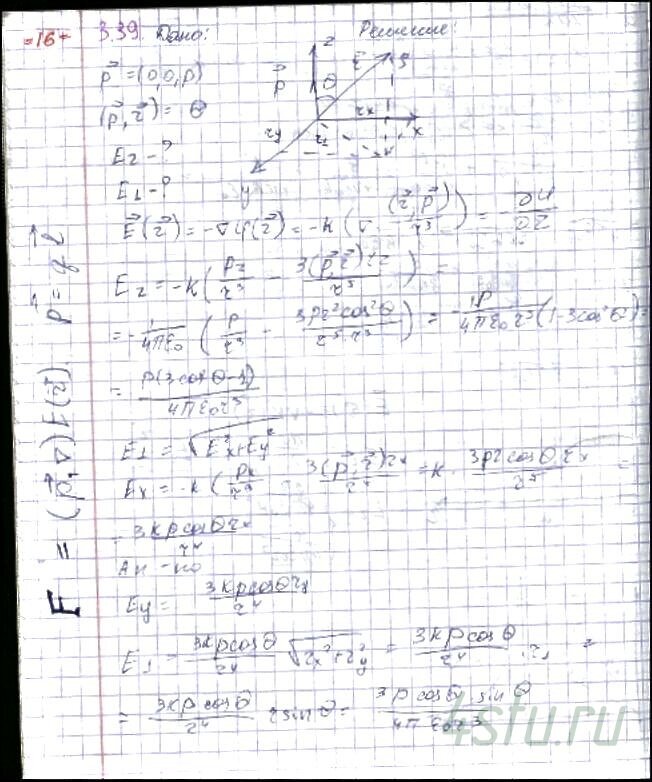 =16= 3.39. Дано: Решение:
p⃗ = (0,0,p)
(p⃗, r⃗) = θ
E_z - ?
E_⊥ - ?
z
r⃗
p⃗
θ
r_x
x
r_y
y
E⃗(r⃗) = -∇φ(r⃗) = -k(∇ (r⃗, p⃗)/r³) = -∂U/∂z
E_z = -k(p_z/r³ - 3(p⃗, r⃗)r_z/r⁵) =
= -1/4πε₀ (p/r³ - 3pr²cos²θ/r⁵) = -1p/4πε₀r³ (1-3cos²θ) =
= p(3cos²θ-1)/4πε₀r³
E_⊥ = √(E²x+Ey²)
E_x = -k(p_x/r³ - 3(p⃗, r⃗)r_x/r⁵) = k · 3pr cosθ r_x/r⁵ =
= 3kp cosθ r_x/r⁴
E_y = 3kp cosθ r_y/r⁴
E_⊥ = 3kp cosθ/r⁴ √(r_x²+r_y²) = 3kp cosθ/r⁴ · r_⊥ =
= 3kp cosθ/r⁴ r sinθ = 3p cosθ · sinθ/4πε₀r³
F = (p⃗, ∇) E(r⃗) p⃗ = q l⃗
4stu.ru